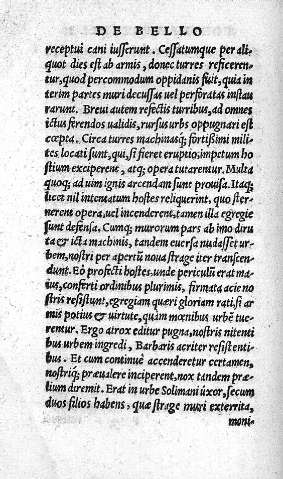 DE BELLO
receptui cani iusserunt. Cessatumque per ali-
quot dies est ab armis, donec turres reficeren-
tur, quod percommodum oppidanis fuit, quia in-
terim partes muri decussas uel perforatas instau
rarunt. Breui autem refectis turribus, ad omnes
ictus ferendos ualidis, rursus urbs oppugnari est
cœpta. Circa turres machinasq; fortissimi mili-
tes locati sunt, qui, si fieret eruptio, impetum ho
stium exciperent, atq; opera tutarentur. Multa
quoq; ad uim ignis arcendam sunt prouisa. Itaq;
licet nil intentatum hostes reliquerint, quo ster-
nerent opera, uel incenderent, tamen illa egregie
sunt defensa. Cumq; murorum pars ab imo diru
ta & icta machinis, tandem euersa nudasset ur-
bem, nostri per apertū noua strage iter transcen-
dunt. Eò profecti hostes, unde periculi erat ma-
ius, conferti ordinibus plurimis, firmata acie no
stris resistūt, egregiam queri gloriam rati, si ar-
mis potius & uirtute, quàm mœnibus urbē tue-
rentur. Ergo atrox editur pugna, nostris nitenti
bus urbem ingredi, Barbaris acriter resistenti-
bus. Et cum continuè accenderetur certamen,
nostriq; præualere inciperent, nox tandem præ-
lium diremit. Erat in urbe Solimani úxor, secum
duos filios habens, quæ strage muri exterrita,
moni-